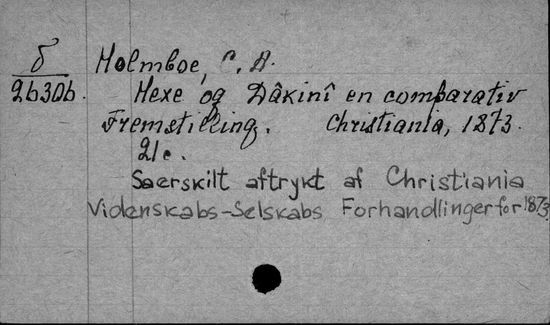 δ Holmboe, C. A.
2b30b. Hexe og Dâkinî en comparativ
Fremstilling. Christiania, 1873.
Saerskilt aftrykt af Christiania
Videnskabs-Selskabs Forhandlinger for 1873.